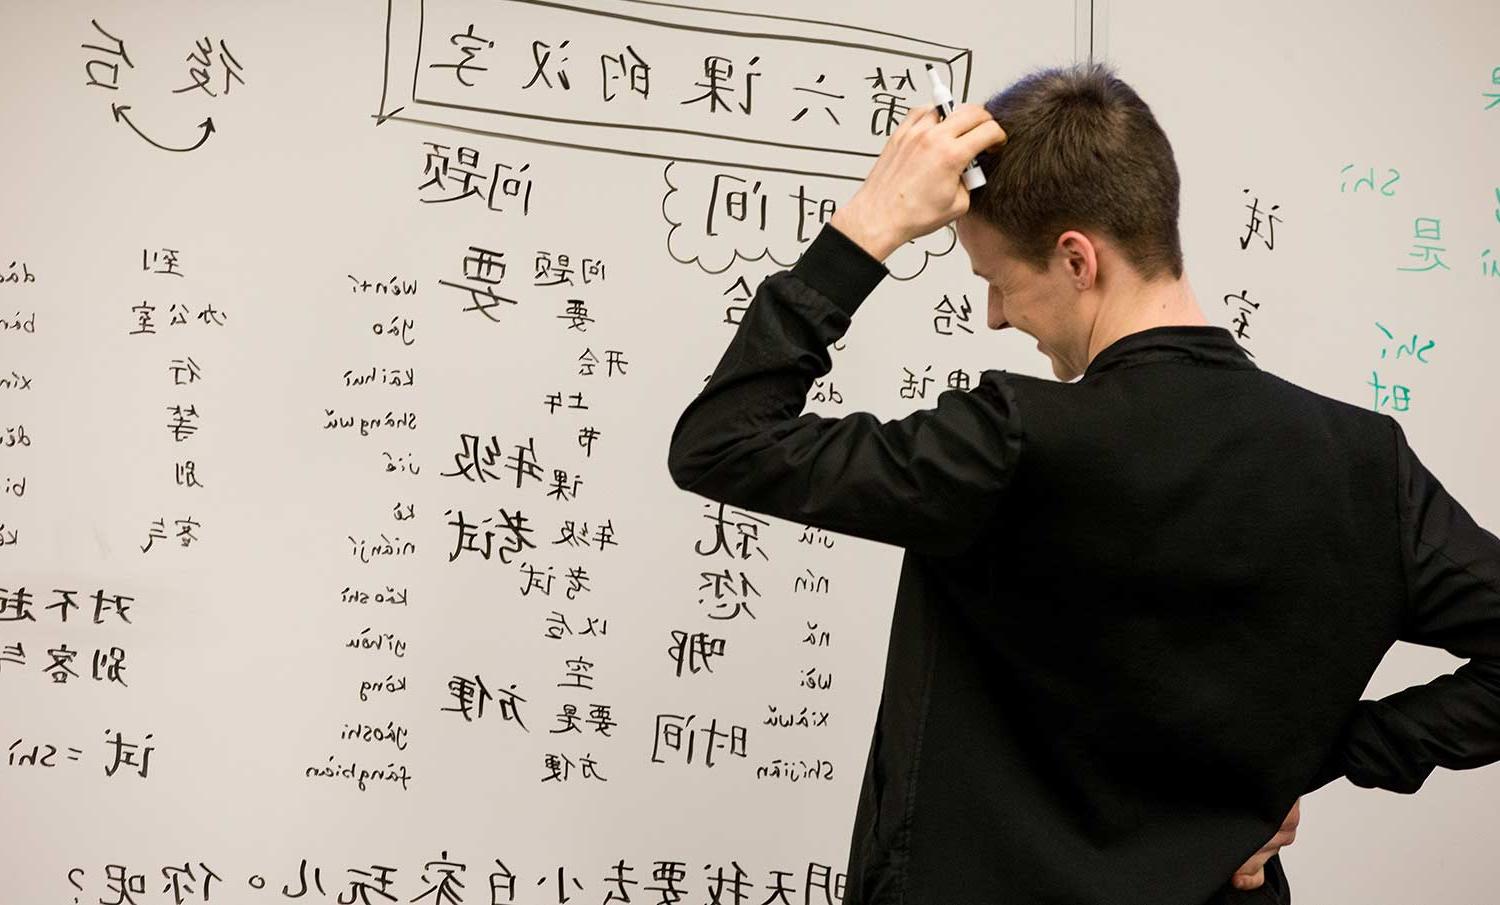 第六课的汉字
後 后
时间
问题
shì
是
shí
时
试
室
给
话
就
您
哪
时间
nín
nǎ
wèi
xiàwǔ
shíjiān
问题
要
开会
上午
节
课
年级
考试
以后
空
要是
方便
要
年级
考试
方便
wèntí
yào
kāihuì
shàngwǔ
jié
kè
niánjí
kǎoshì
yǐhòu
kòng
yàoshi
fāngbiàn
到
办公室
行
等
别
客气
对不起
别客气
试 = shì
明天我要去小白家玩儿。你呢?